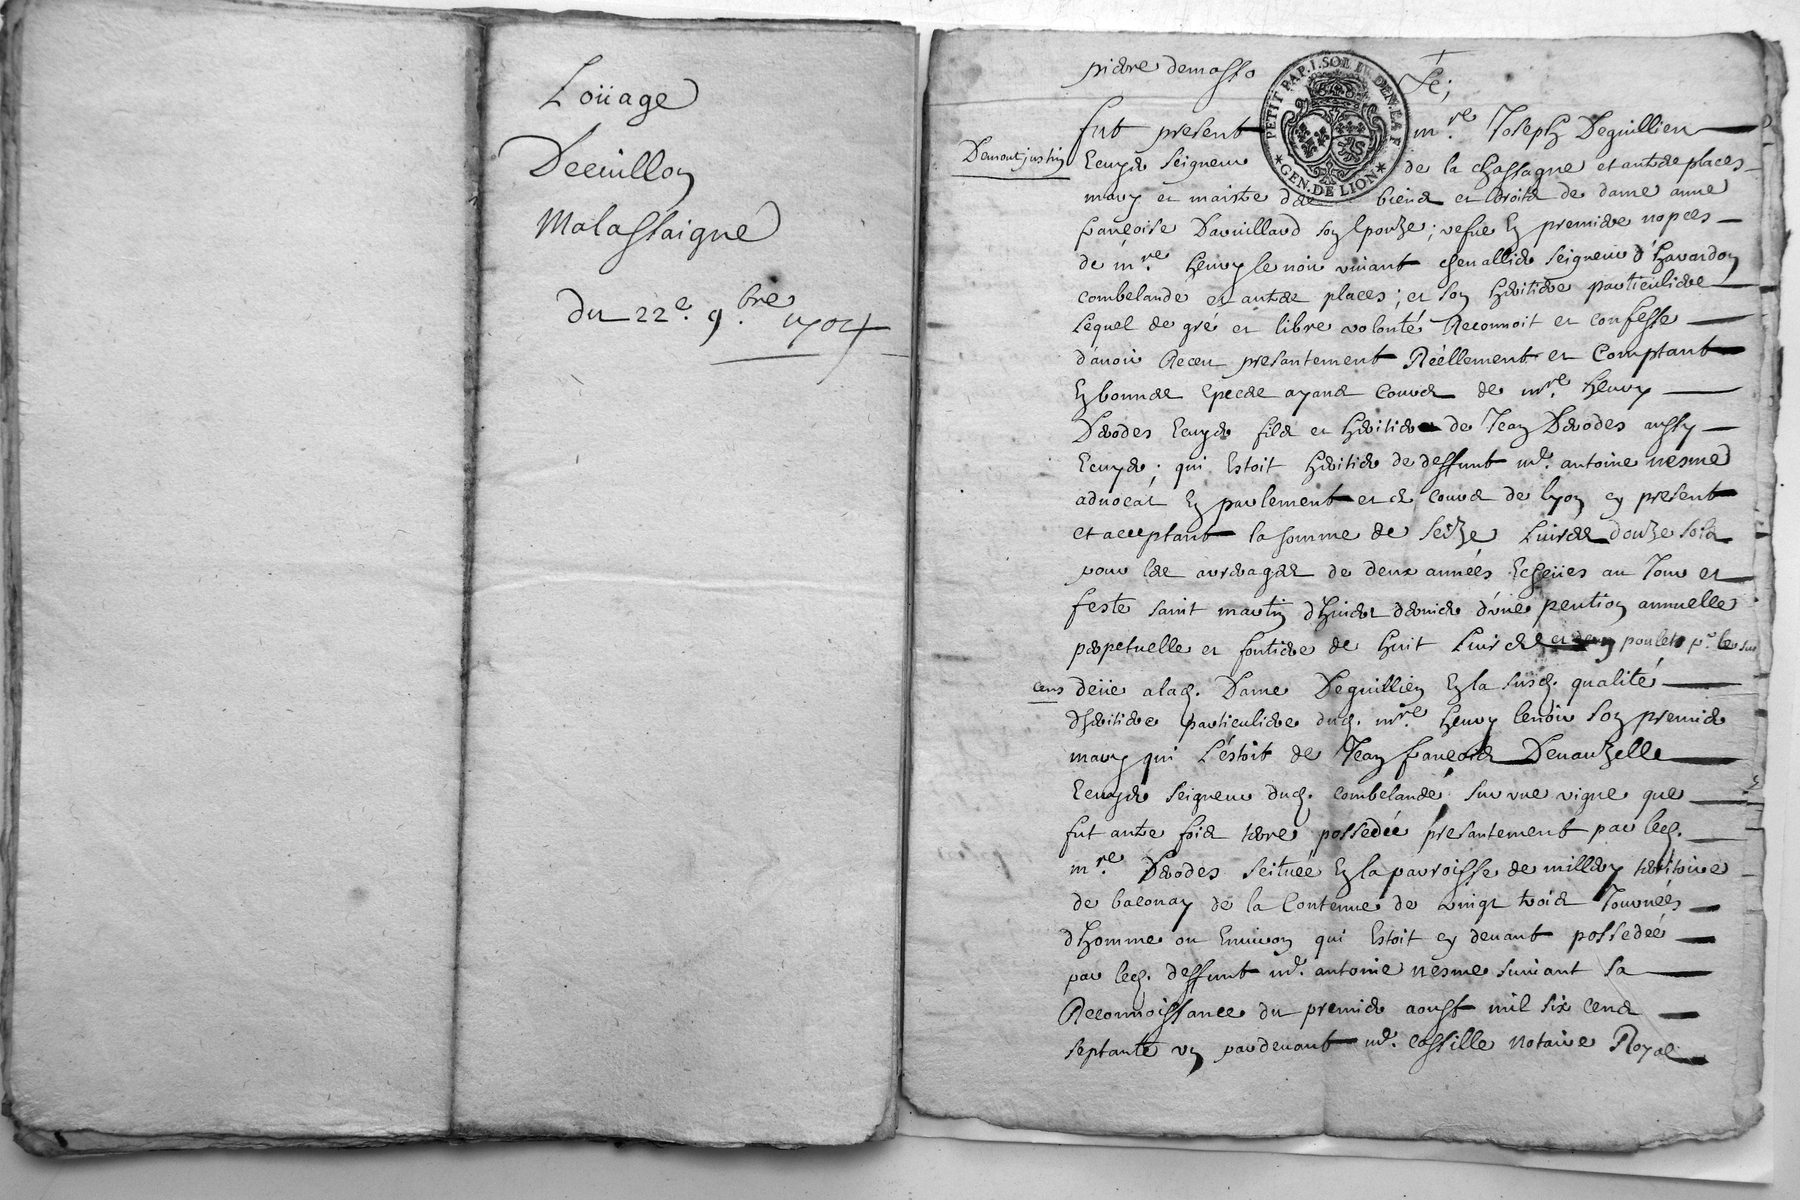 Loüage
Decuillon
Malassaigne
du 22e. 9.bre 1704
pierre demasso
PETIT PAP. I. SOL IV. DEN. LA F
GEN. DE LION
Fut present mre. Joseph Deguillien
Demontjustin
Ecuyer Seigneur de la chassagne et autres places
mary et maistre des biens et droits de dame anne
françoise Davuillard son Epouze; vefue En premiere nopces
de mre. henry le noir viuant cheuallier Seigneur d'havardon
combelande et autres places; et son heritiere particuliere
Lequel de gré et libre volonté Reconnoit et confesse
d'auoir Receu presantement Réellement et Comptant
En bonnes Epeces ayans Cours de mre. henry
Derodes Ecuyer fils et heritier de Jean Derodes aussy
Ecuyer; qui Estoit heritier de deffunt me. antoine nesme
aduocat En parlement et es cours de lyon cy present
et acceptant la somme de Seize Liures douze sols
pour les arrerages de deux années Echeües au Jour et
feste saint martin d'hiuer dernier d'vne pention annuelle
perpetuelle et fontiere de huit Liures et deux poulets pr. le sur
cens
deüe a lad. Dame Deguillien En la susd. qualité
d'heritiere particuliere dud. mre. henry lenoir son premier
mary qui L'éstoit de Jean françois Denauzelle
Ecuyer Seigneur dud. combelande sur vne vigne que
fut autre fois terre possedée presantement par led.
mre. Derodes Seituée En la parroisse de millery territoire
de baconay de la Contenue de vingt trois Journées
d'homme ou Enuiron qui Estoit cy deuant possedée
par led. deffunt me. antoine nesme suiuant sa
Reconnoissance du premier aoust mil six cens
septante vn pardeuant me. Cassille notaire Royal